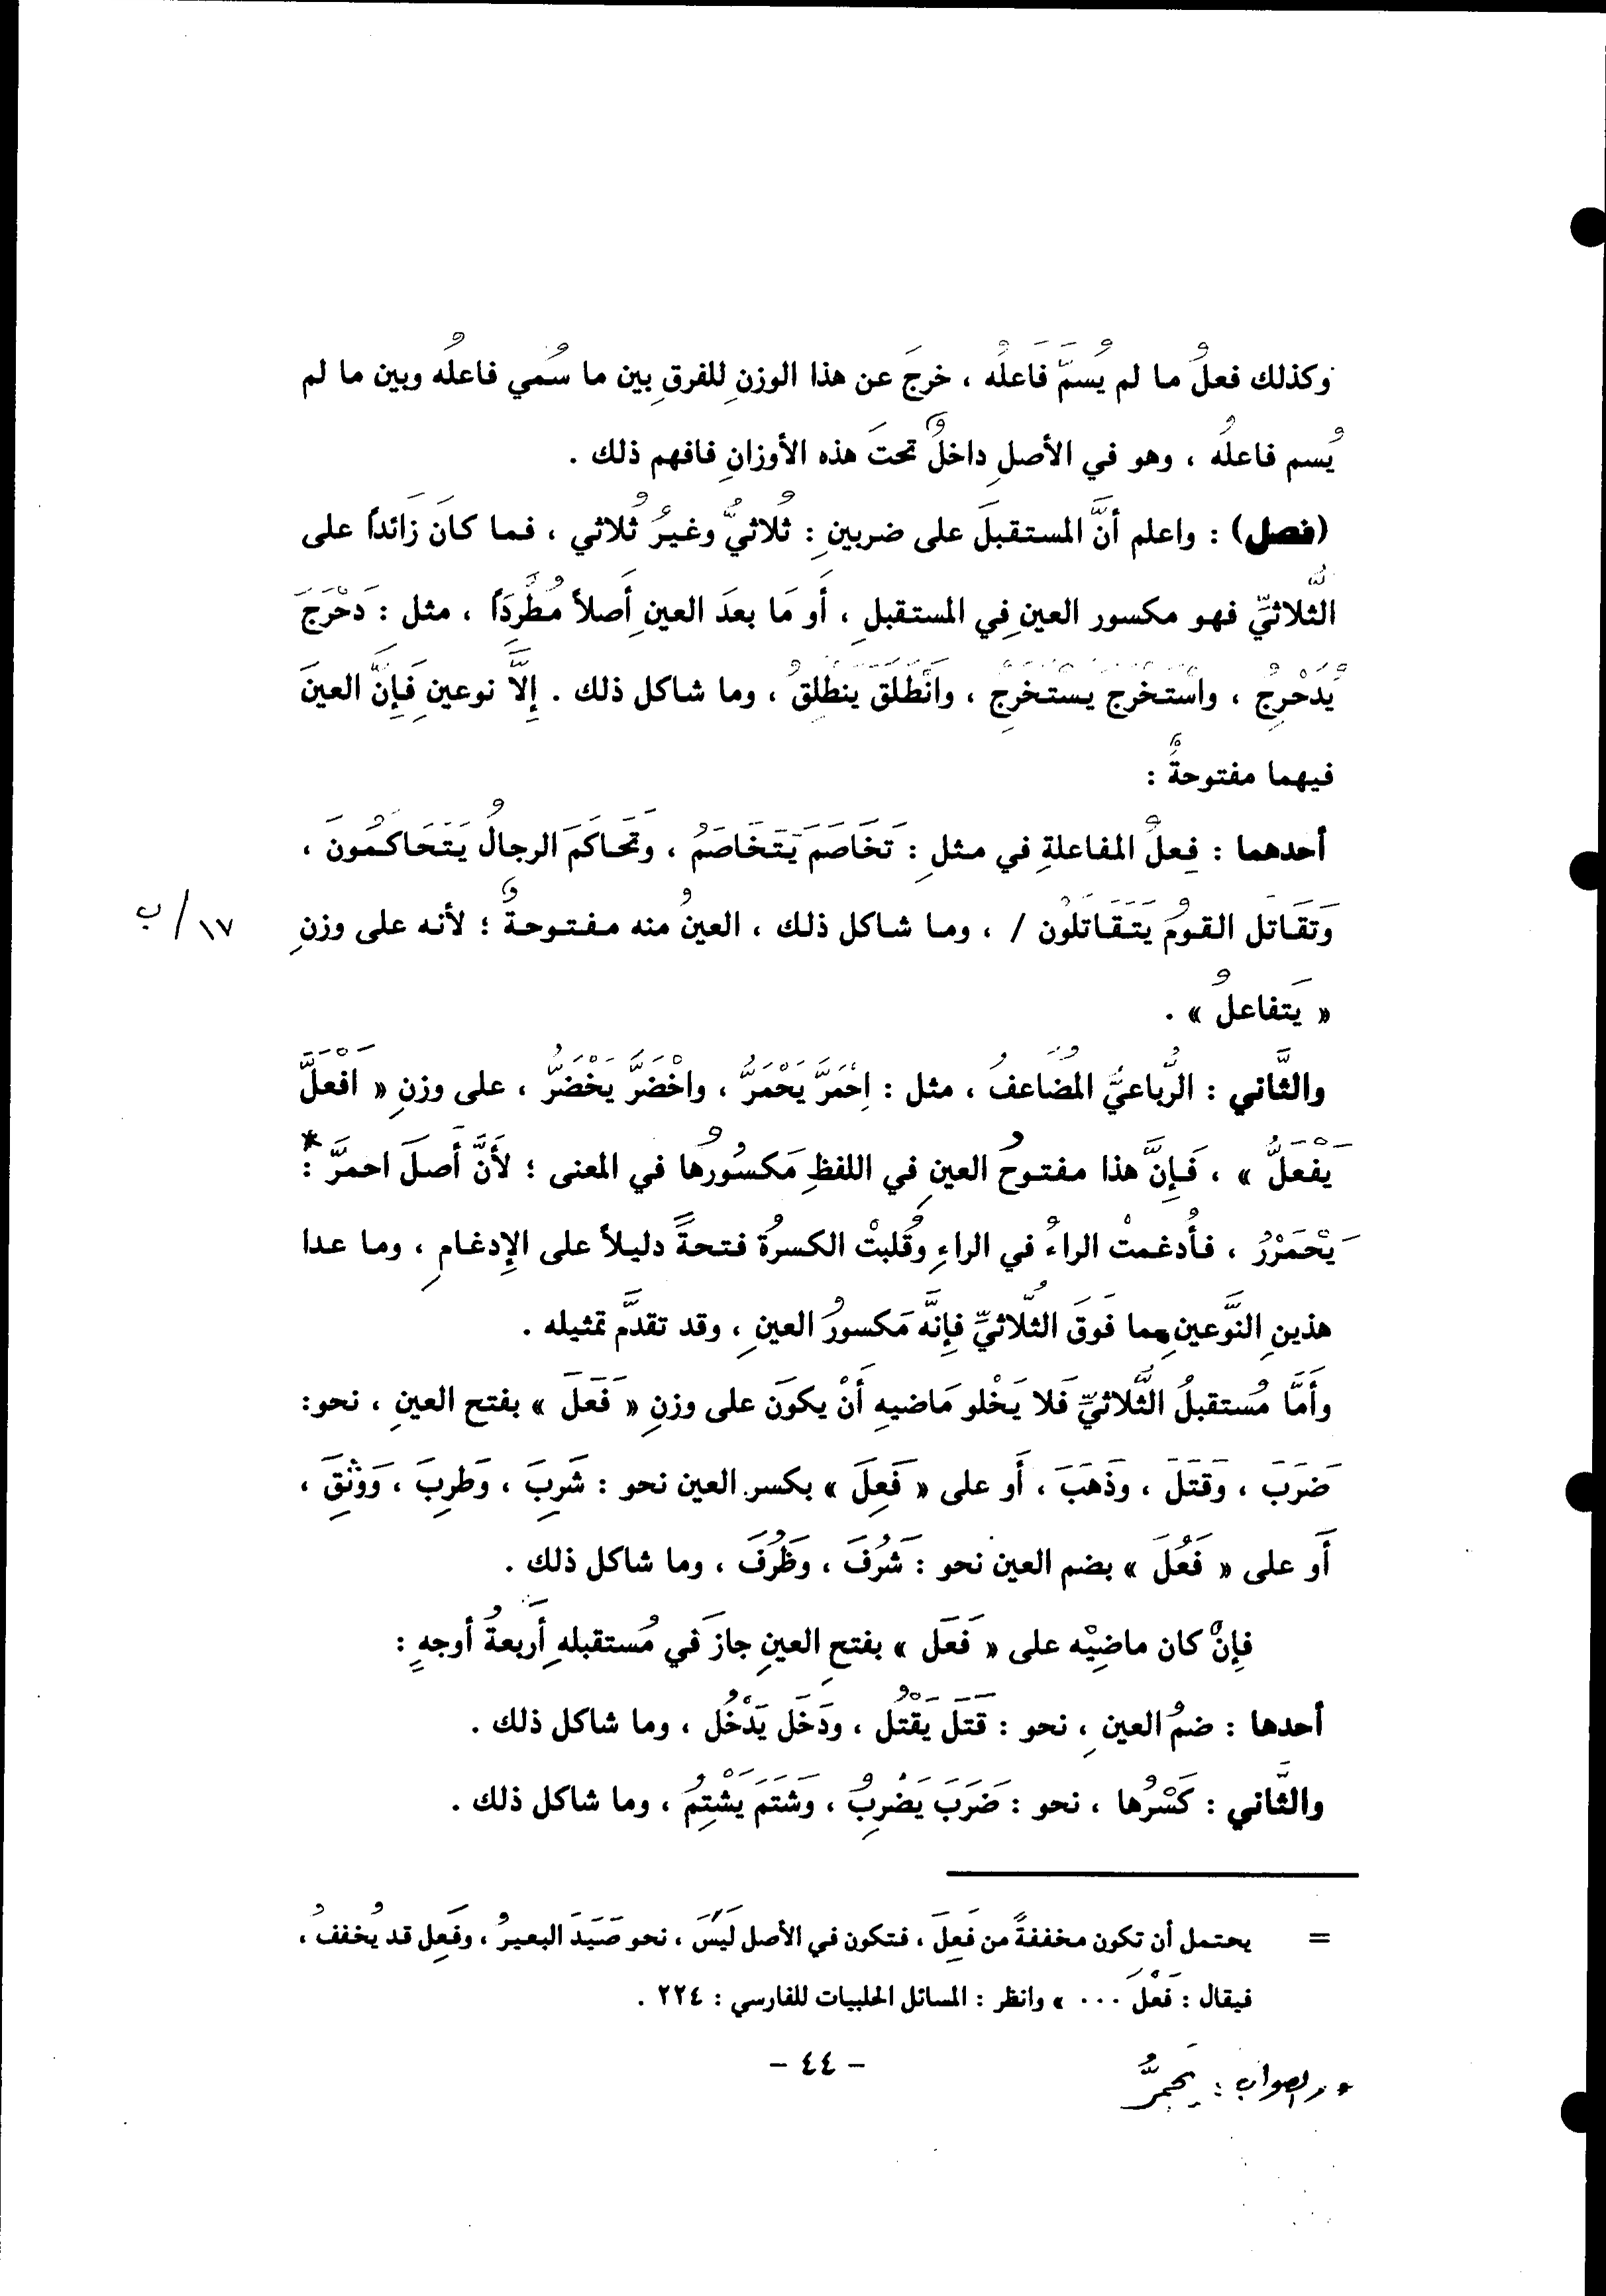 وكذلك فعلُ ما لم يُسمَّ فَاعلُه ، خرجَ عن هذا الوزنِ للفرقِ بين ما سُمي فاعلُه وبين ما لم
يُسم فاعلُه ، وهو في الأصلِ داخلٌ تحتَ هذه الأوزانِ فافهم ذلك .
(فصل) : واعلم أنَّ المستقبلَ على ضربينِ : ثُلاثيٌّ وغيرُ ثُلاثي ، فما كانَ زَائداً على
الثُّلاثيِّ فهو مكسور العينِ في المستقبلِ ، أَو مَا بعدَ العينِ أَصلاً مُطَّرِدَاً ، مثل : دَحْرَجَ
يُدَحْرِجُ ، واسْتَخْرَجَ يسْتَخرِجُ ، وانْطَلَقَ ينطَلِقُ ، وما شاكل ذلك . إِلَّا نوعينِ فَإِنَّ العينَ
فيهما مفتوحةٌ :
أحدهما : فِعلُ المفاعلةِ في مثلِ : تَخَاصَمَ يَتَخَاصَمُ ، وَتَحَاكَمَ الرجالُ يَتَحَاكَمُونَ ،
وَتَقَاتل القومُ يَتَقَاتلُون / ، وما شاكل ذلك ، العينُ منه مفتوحةٌ ؛ لأنه على وزنِ
١٧/ب
« يَتفاعلُ » .
والثَّاني : الرُّباعيُّ المُضَاعفُ ، مثل : اِحْمَرَّ يَحْمَرُّ ، واخْضَرَّ يَخْضَرُّ ، على وزنِ « افْعَلَّ
يَفْعَلُّ » ، فَإِنَّ هذا مفتوحُ العينِ في اللفظِ مَكسُورُها في المعنى ؛ لأَنَّ أَصلَ احمرَّ* :
يَحْمَرْرُ ، فأُدغمتْ الراءُ في الراءِ وقُلبتْ الكسرةُ فتحةً دليلاً على الإِدغامِ ، وما عدا
هذينِ النَّوعينِ مما فَوقَ الثُّلاثيِّ فإِنَّه مَكسورُ العينِ ، وقد تقدَّم تمثيله .
وأَمَّا مُستقبلُ الثُّلاثيِّ فَلا يَخْلو مَاضيهِ أَنْ يكوَن على وزنِ « فَعَلَ » بفتح العينِ ، نحو:
ضَرَبَ ، وَقَتَلَ ، وذَهَبَ ، أَو على « فَعِلَ » بكسر العين نحو : شَرِبَ ، وَطَرِبَ ، وَوَثِقَ ،
أَو على « فَعُلَ » بضم العين نحو : شَرُفَ ، وَظَرُفَ ، وما شاكل ذلك .
فإِنْ كان ماضِيْه على « فَعَل » بفتحِ العينِ جازَ في مُستقبلهِ أَربعةُ أوجهٍ :
أحدها : ضمُ العينِ ، نحو : قَتَلَ يَقْتُل ، ودَخَل يَدْخُل ، وما شاكل ذلك .
والثَّاني : كَسْرُها ، نحو : ضَرَبَ يَضْرِبُ ، وَشَتَمَ يَشْتِمُ ، وما شاكل ذلك .
= يحتمل أن تكون مخففةً من فَعِلَ ، فتكون في الأصل لَيِسَ ، نحو صَيَدَ البعيرُ ، وفَعِل قد يُخففُ ،
فيقال : فَعْلَ ... » وانظر : المسائل الحلبيات للفارسي : ٢٢٤ .
- ٤٤ -
* والصواب : يَحْمِرُّ